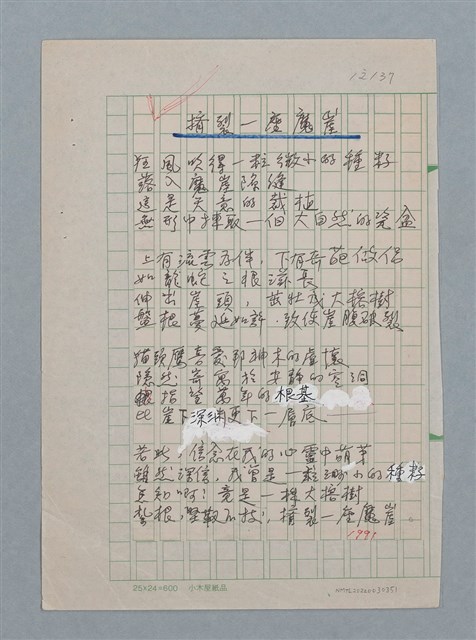 12137
擠裂一座魔崖
狂風吹得一粒微小的種籽
落入魔崖隙縫
這是天意的栽植
無形中揀取一個大自然的瓷盆
上有流雲為伴，下有奇葩做保
如龍蛇之根滋長
伸出崖頭，茁壯成大榕樹
盤根蔓延如許，致使崖腹破裂
貓頭鷹喜愛那神木的虛懷
隱然寄寓於安靜的空洞
指望萬年的根基
比崖下深淵更下一層底
若此，信念在我的心靈中萌芽
雖然深信，我曾是一粒渺小的種籽
豈知啊！竟是一棵大榕樹
紮根，堅毅不拔，擠裂一座魔崖
1991
25×24=600 小木屋紙品